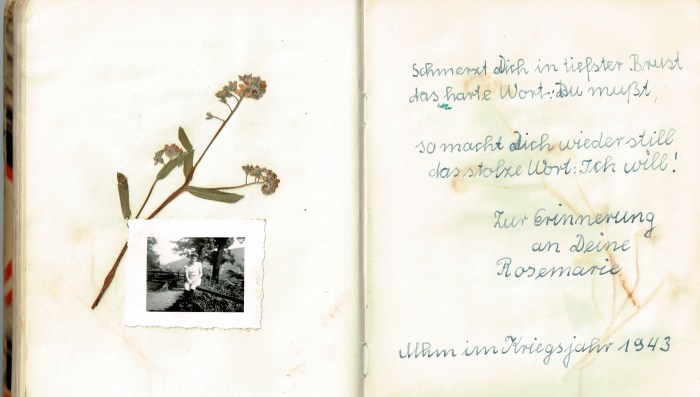 Schmerzt Dich in tiefster Brust
das harte Wort: Du mußt,
so macht Dich wieder still
das stolze Wort: Ich will!
Zur Erinnerung
an Deine
Rosemarie
Mhm im Kriegsjahr 1943